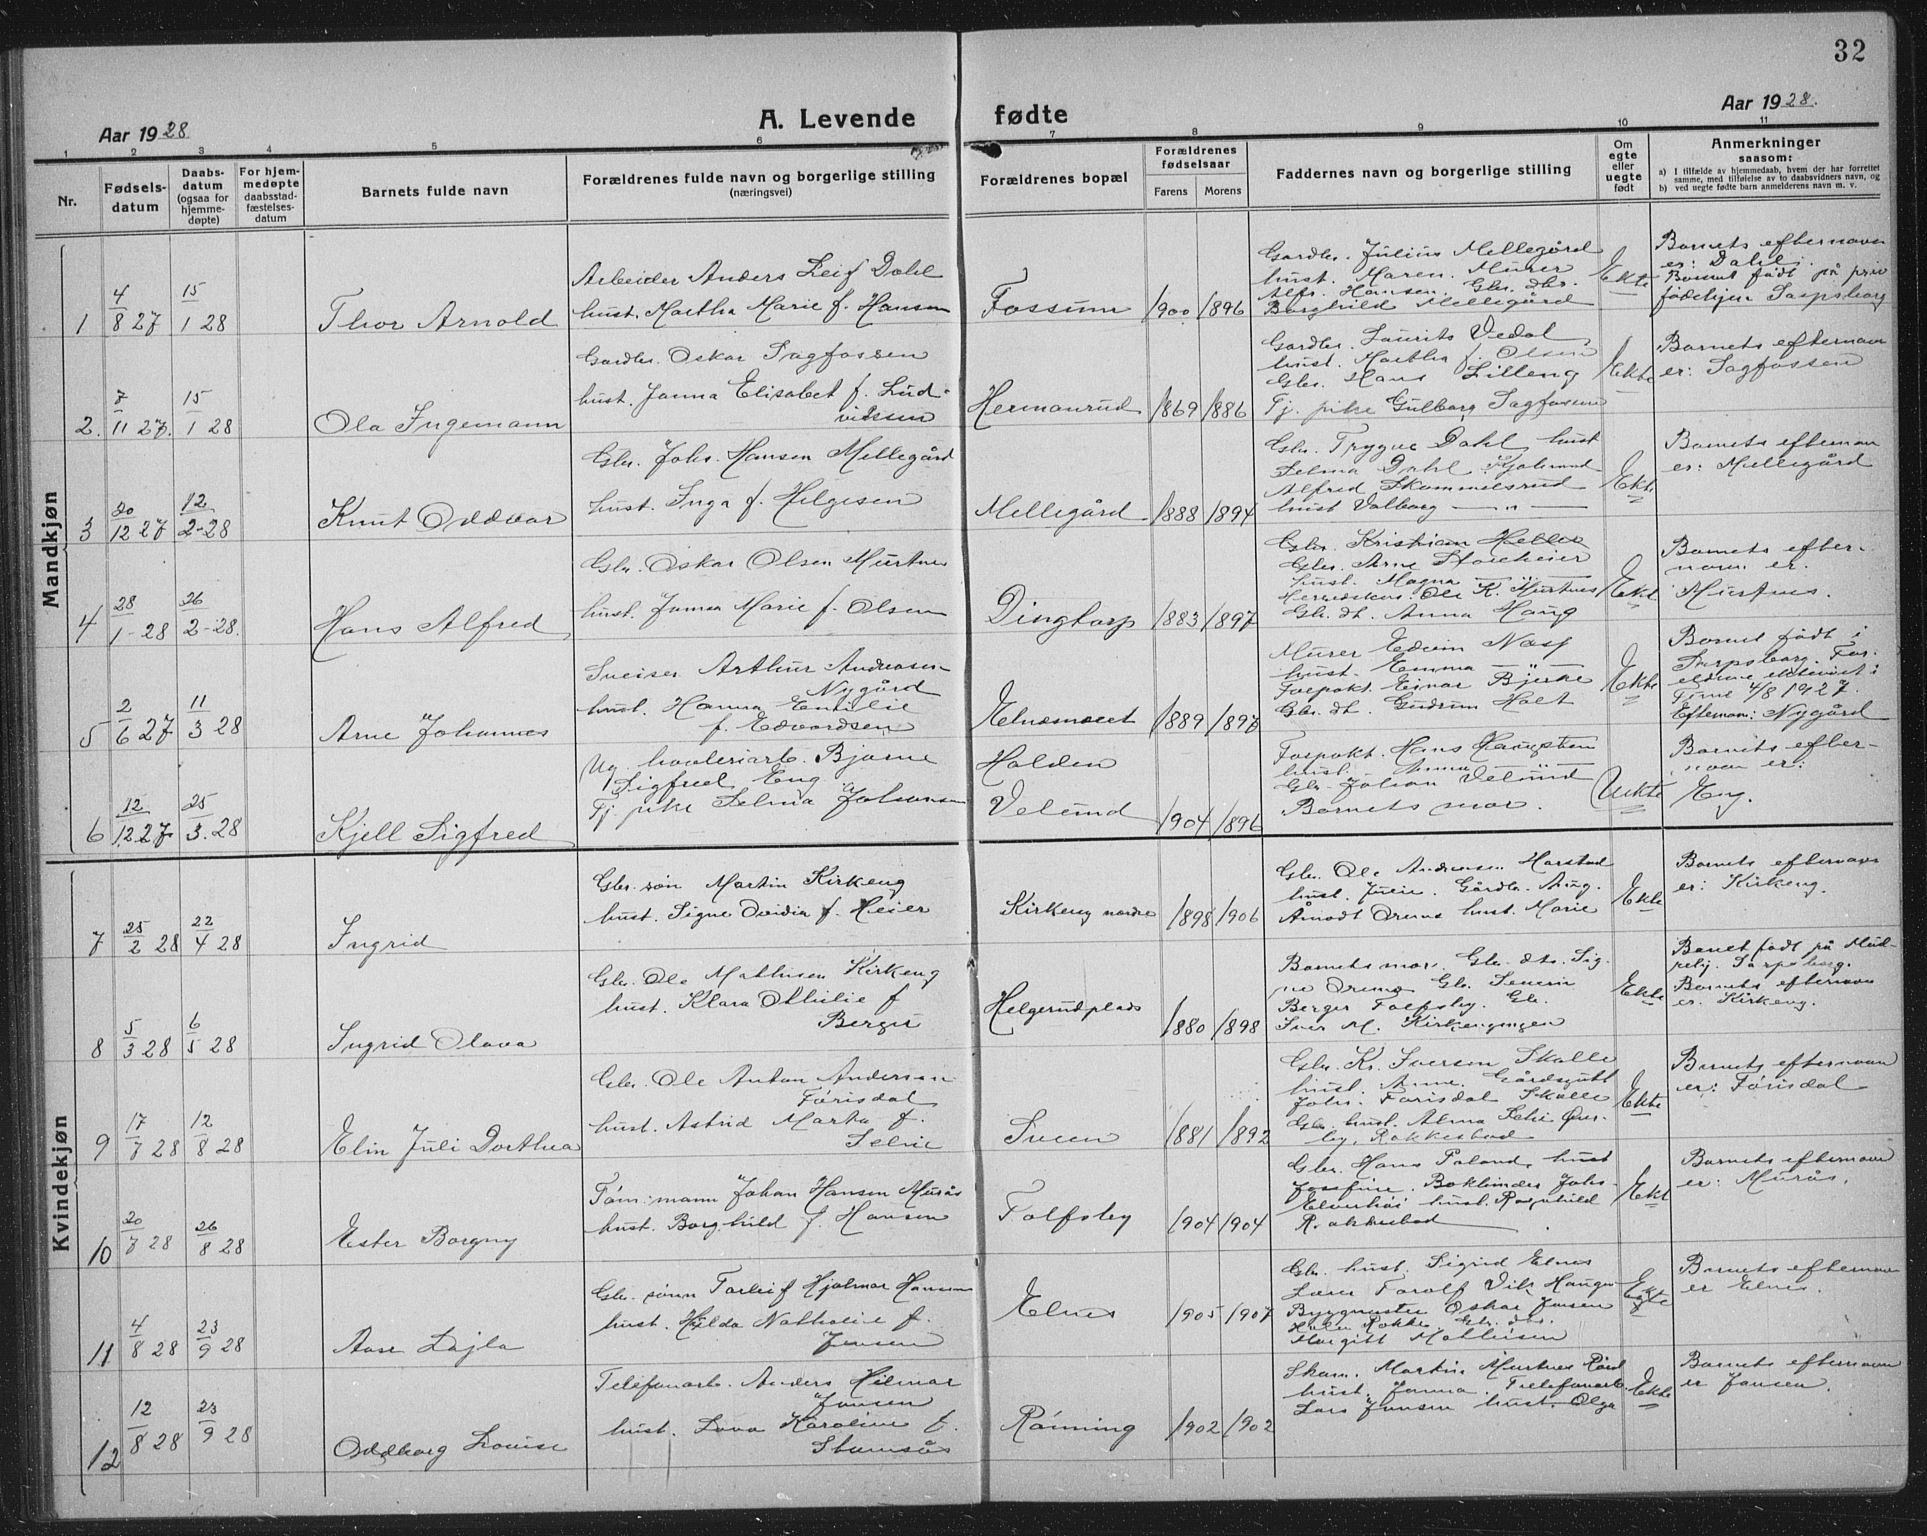 32
Aar 1928
A. Levende fødte
Aar 1928.
1 2 3 4 5 6 7 8 9 10 11
Nr.
Fødsels-
datum
Daabs-
datum
(ogsaa for
hjemme-
døpte)
For hjem-
medøpte
daabsstad-
fæstelses-
datum
Barnets fulde navn
Forældrenes fulde navn og borgerlige stilling
(næringsvei)
Forældrenes bopæl
Forældrenes
fødselsaar
Farens Morens
Faddernes navn og borgerlige stilling
Om
egte
eller
uegte
født
Anmerkninger
saasom:
a) I tilfælde av hjemmedaab, hvem der har forrettet
samme, med tilføielse av to daabsvidners navn, og
b) ved uegte fødte barn anmelderens navn m. v.
Mandkjøn
1
4/8 27
15/1 28
Thor Arnold
Arbeider Anders Leif Dahl
hust. Martha Marie f. Hansen
Fossum
1900 1896
Gardbr. Julius Mellegård
hust. Maren. Murer
Alfr. Hansen. Gbr. dtr.
Borghild Mellegård
Ekte
Barnets efternavn
er: Dahl.
Barnet født på priv
fødehjem Sarpsborg
2.
7/11 27.
15/1 28
Ola Ingemann
Gardbr. Oskar Sagfossen
hust. Janna Elisabet f. Lud-
viksen
Hermanrud
1869 1886
Gardbr. Laurits Vedal,
hust. Martha f. Olsen
Gbr. Hans Lilleng
Tj. pike Gulborg Sagfossen
Ekte
Barnets efternavn
er: Sagfossen
3
20/12 27
12/2-28
Knut Oddvar
Gbr. Johs. Hansen Mellegård
hust. Inga f. Helgesen
Mellegård
1888 1894
Gbr. Trygve Dahl, hust
Selma Dahl.
Alfred Skammelsrud
hust Valborg — " —
Ekte
Barnets efternavn
er: Mellegård
4
28/1-28
26/2-28.
Hans Alfred
Gbr. Oskar Olsen Murtnes
hust. Janna Marie f. Olsen
Dingtorp
1883 1897
Gbr. Kristian Helle
Gbr. Arne Storeheier
hust. Magna —
Ole K. Murtnes
Gbr. dt. Anna Haug
Ekte
Barnets efter-
navn er.
Murtnes.
5
2/6 27
11/3 28
Arne Johannes
Sveiser Arthur Andreasen
Nygård
hust. Hanna Emilie
f. Edvardsen
1889 1897
Murer Edvin Næss
hust. Emma —
Forpakt. Einar Bjerke
Gbr. dt. Gudrun Holt
Ekte
Barnet født i
Sarpsborg. For-
eldrene ekteviet i
Tune 4/8 1927.
Efternavn: Nygård
6
12/12 27
25/3. 28
Kjell Sigfred
Ug. Bjarne
Sigfred Eng
Tj. pike Selma Johansen
Halden
Velund
1904 1896
Forpakt. Hans Haugsten
hust. Anna —
Gbr. Johan Velund
Barnets mor.
Uekte
Barnets efter-
navn er:
Eng.
Kvindekjøn
7
25/2 28
22/4 28
Ingrid
Gbr. søn Martin Kirkeng
hust. Signe Ovidia f. Heier
Kirkeng nordre
1898 1906
Gbr. Ole Andreasen Harstad
hust. Julie. Gårdbr. Aug.
Åmodt Øremo hust. Marie
Ekte
Barnets efternavn
er: Kirkeng.
8
5/3 28
6/5 28
Ingrid Olava
Gbr. Ole Mathisen Kirkeng
hust. Klara Othilie f
Berger
Helgerudplads
1880 1898
Barnets mor. Gbr. dtr. Sig-
ne Øremo Gbr. Severin
Berger Folfsby. Gbr.
Iver M. Kirkengengen
Ekte
Barnet født på
Sarpsborg.
Barnets efternavn
er. Kirkeng.
9
17/7 28
12/8 28
Elin Juli Dorthea
Gbr. Ole Anton Andersen
Førisdal
hust. Astrid Marta f.
Selvie
Sveen
1881 1892
Gbr. Kr. Iversen Skalle
hust. Anne. Gårdsgutt
Johs. Førisdal Skalle
Gbr. hust. Alma
Rakkestad
Ekte
Barnets efternavn
er: Førisdal
10
20/7 28
26/8 28
Ester Borgny
Tøm. mann Johan Hansen Murås
hust. Borghild f. Hansen
Folfsby
1904 1904
Gbr. Hans Poland, hust
Josefine. Bokbinder Johs.
Elverhøi hust. Ragnhild
Rakkestad
Ekte
Barnets efternavn
er: Murås.
11
4/8 28
23/9 28
Aase Lajla
Gbr. sønn Torleif Hjalmar Hansen
hust. Hilda Nathalie f.
Jensen
Elnes
1905 1907
Gbr. hust. Sigrid Elnes
Lærer Torolf Vik Haugen
Byggmester Oskar Jensen
Rakke. Gbr. dtr.
Margitt Mathisen
Ekte
Barnets efternavn
er Elnes.
12
12/8 28
23/9 28
Oddborg Louise
Telefonarb. Anders Hilmar
Jansen
hust. Lova Karoline f.
Stamsås
Rønning
1902 1902
Skom. Martin Murtnes
hust. Janna. Telefonarb.
Lars Jansen hust. Olga
Ekte
Barnets efternavn
er Jansen.